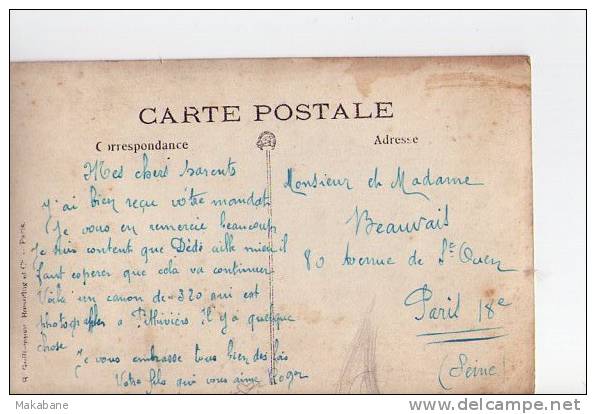 CARTE POSTALE
Correspondance
Adresse
Mes chers parents
j'ai bien reçu vôtre mandat
Je vous en remercie beaucoup
Je suis content que Dédé aille mieu il
faut esperer que cela va continuer
Voila un canon de 320 qui est
photographier a Pithiviers il y a quelque
chose
Je vous embrasse tous bien des fois
Votre fils qui vous aime Roger
Monsieur et Madame
Beauvais
80 Avenue de St Ouen
Paris 18e
(Seine)
Paris
Makabane
delcampe.net